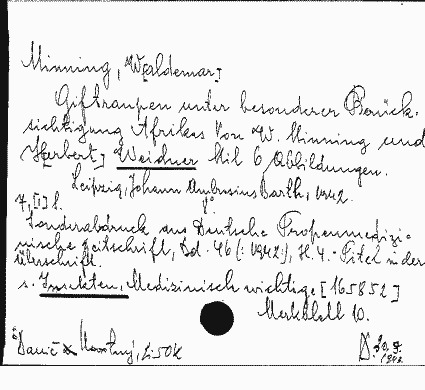 Minning, W[aldemar]
Giftraupen unter besonderer Berück-
sichtigung Afrikas Von W. Minning und
H[erbert] Weidner Mit 6 Abbildungen.
Leipzig, Johann Ambrosius Barth, 1942.
8°
7, [1] S.
Sonderabdruck aus Deutsche Tropenmedizi-
nische Zeitschrift, Bd. 46 (: 1942:), H. 4. - Titel in der
Überschrift.
s. Insekten, Medizinisch wichtige [165852]
Merkblatt 10.